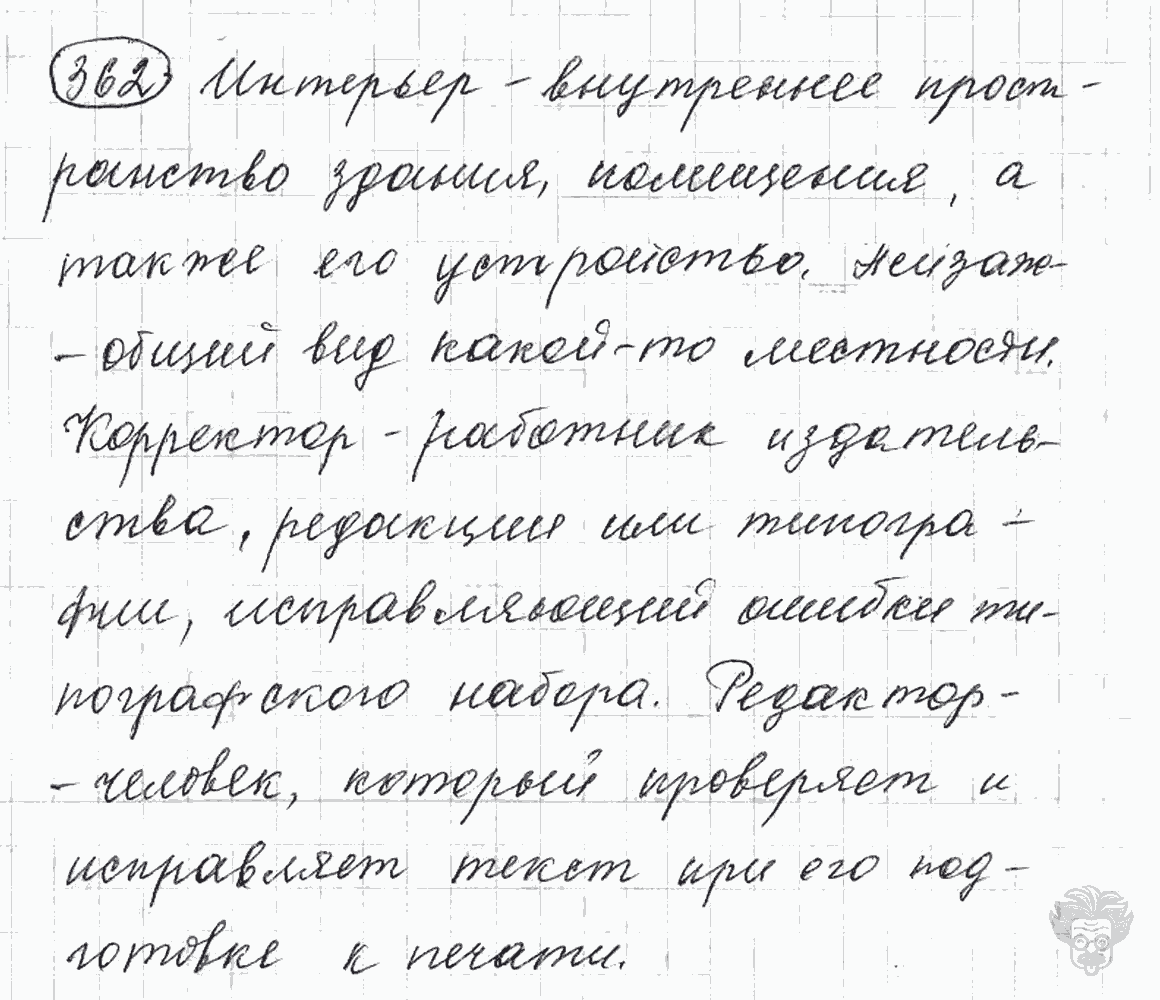 362 Интерьер - внутреннее прост-
ранство здания, помещения, а
также его устройство. Пейзаж-
- общий вид какой-то местности.
Корректор - работник издатель-
ства, редакции или типогра-
фии, исправляющий ошибки ти-
пографского набора. Редактор-
- человек, который проверяет и
исправляет текст при его под-
готовке к печати.